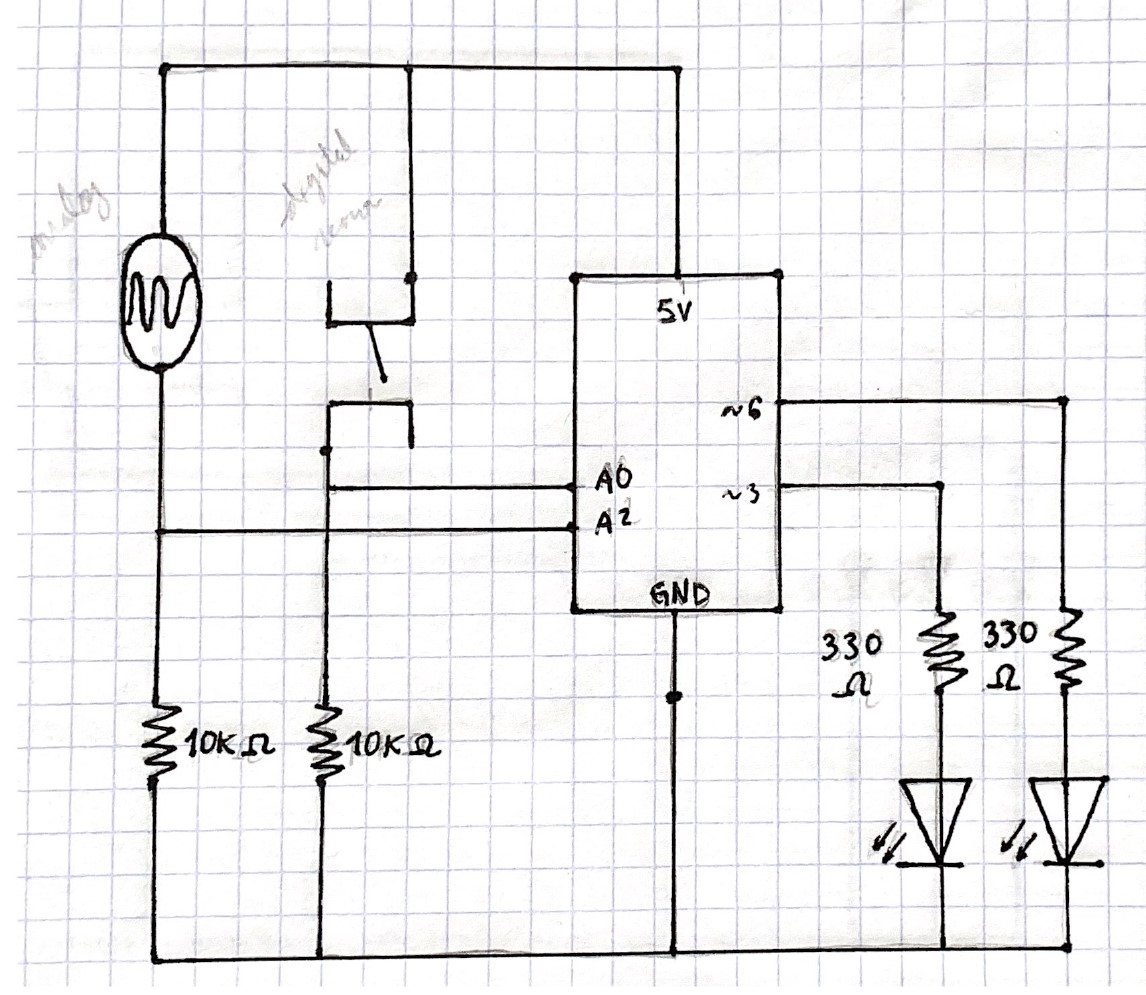 analog
digital
5V
~6
A0
~3
A2
GND
330
Ω
330
Ω
10KΩ
10KΩ